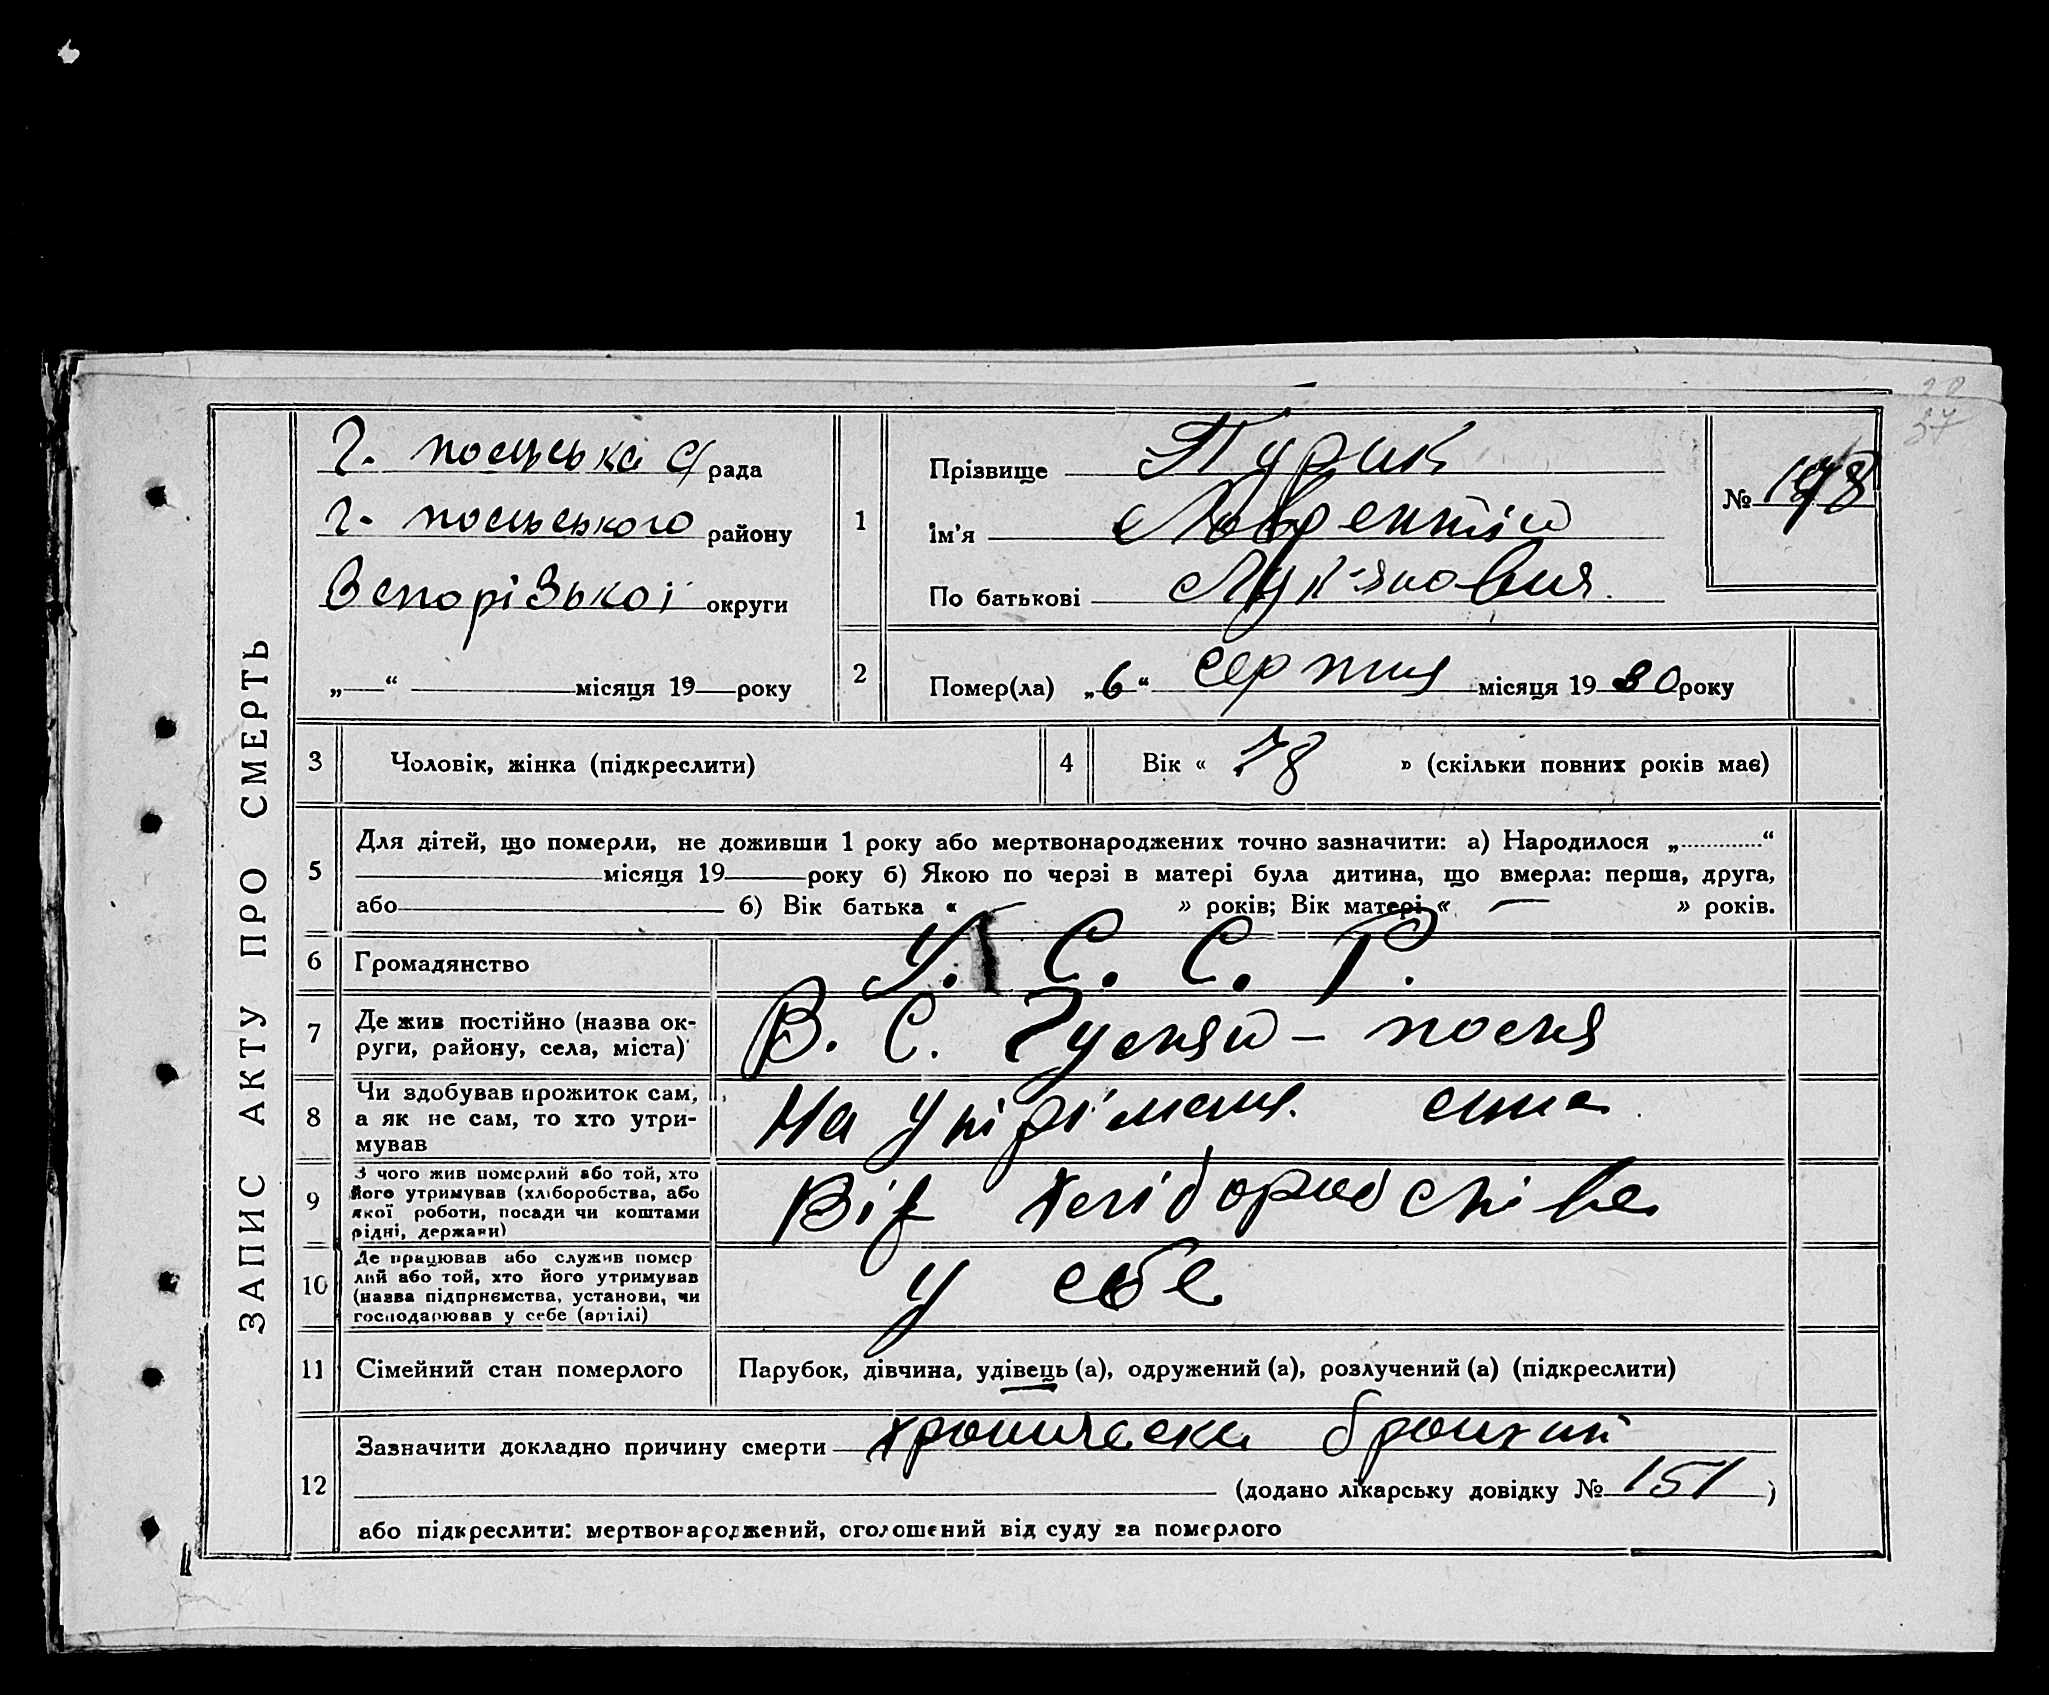 ЗАПИС АКТУ ПРО СМЕРТЬ
Г. польська с/рада
Г. польського району
Запорізької округи
„—“ місяця 19 — року
1
Прізвище Турик
Ім'я Лаврентій
По батькові Лук'янович
№ 198
2
Помер(ла) „6“ серпня місяця 1930 року
3 Чоловік, жінка (підкреслити)
4 Вік « 78 » (скільки повних років має)
5
Для дітей, що померли, не доживши 1 року або мертвонароджених точно зазначити: а) Народилося „............“
місяця 19 року б) Якою по черзі в матері була дитина, що вмерла: перша, друга,
або б) Вік батька « — » років; Вік матері « — » років.
6 Громадянство У. С. С. Р.
7 Де жив постійно (назва ок-
руги, району, села, міста) В. С. Гуляй-поля
8 Чи здобував прожиток сам,
а як не сам, то хто утри-
мував На утріманн. сина
9 З чого жив померлий або той, хто
його утримував (хліборобства, або
якої роботи, посади чи коштами
рідні, держави) Від хліборобства
10 Де працював або служив помер
лий або той, хто його утримував
(назва підприємства, установи, чи
господарював у себе (артілі) У себе
11 Сімейний стан померлого Парубок, дівчина, удівець (а), одружений (а), розлучений (а) (підкреслити)
12
Зазначити докладно причину смерти хроническа бронхит
(додано лікарську довідку № 151)
або підкреслити: мертвонароджений, оголошений від суду за померлого